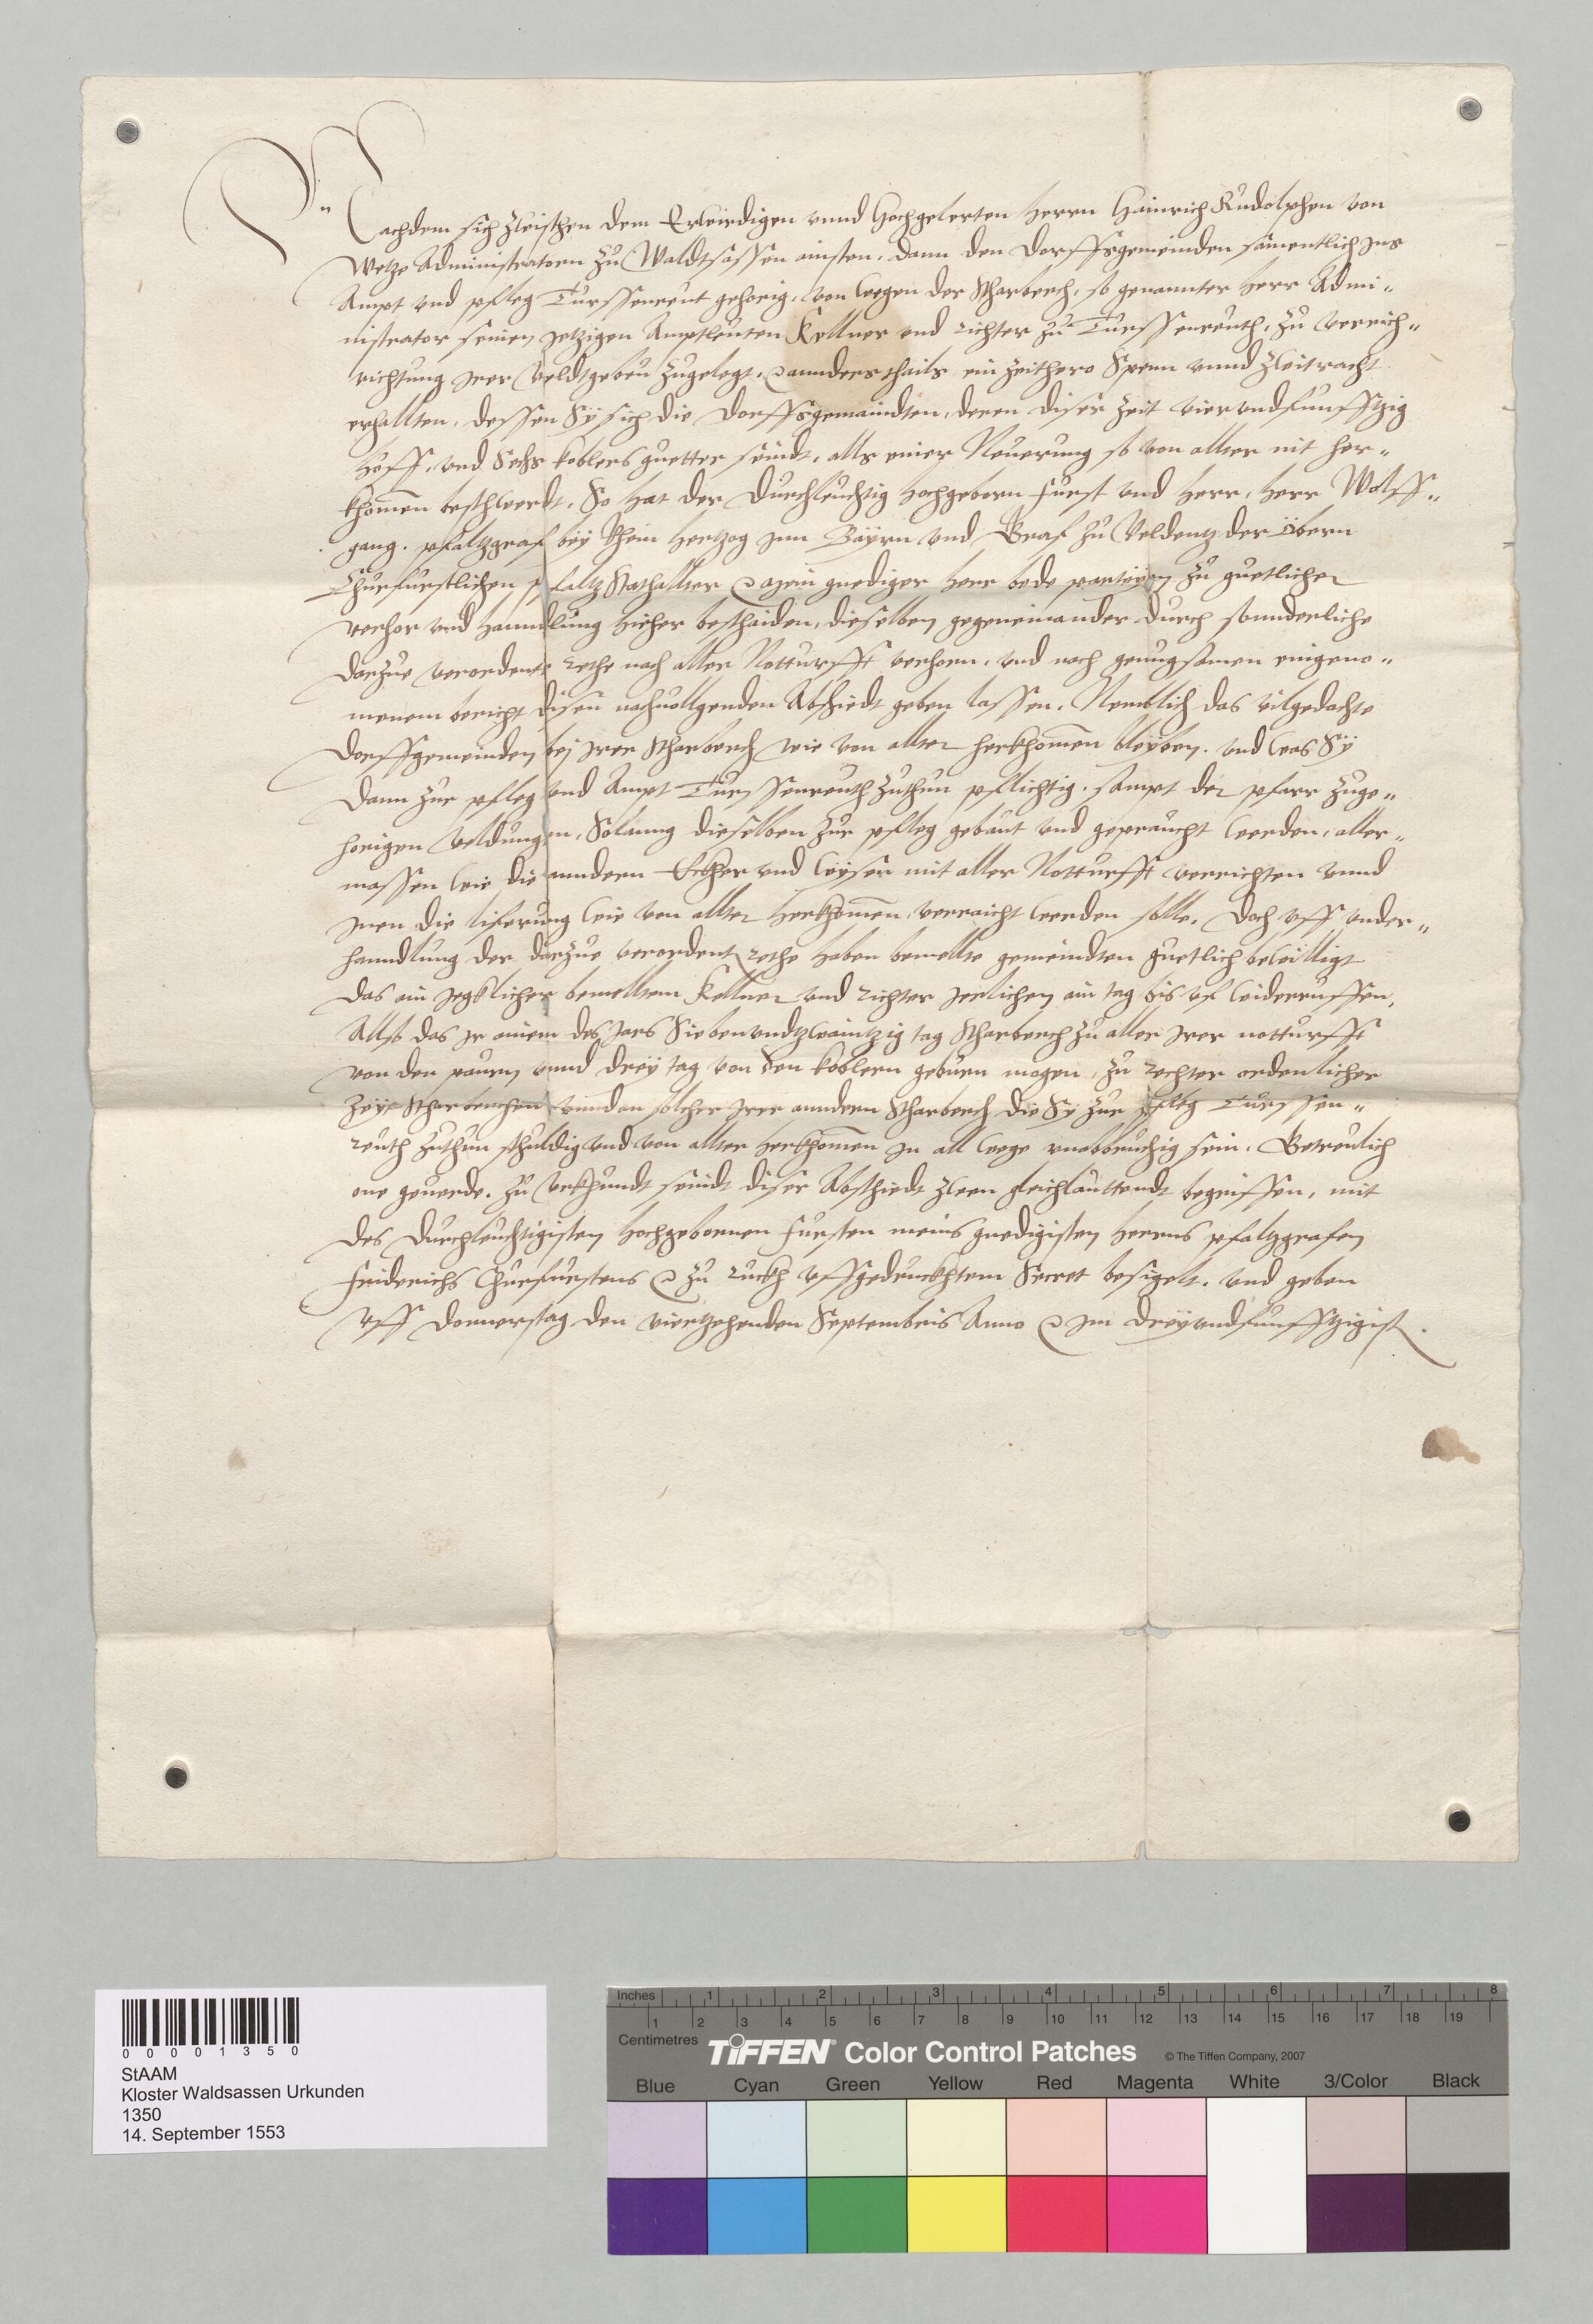 Nachdem sich zwischen dem Erwirdigen unnd Hochgelerten Herrn Hainrich Rudolphen von
Wetze Administratorn zu Waldtsassen ainsten, dann den Dorffsgemeinden samentlich Ins
Ampt und pfleg Turssenreut gehorig, von wegen der Scharberch, so genannter Herr Admi-
nistrator seinen jetzigen Amptleuten Kellner und Richter zu Turssenreuth, zu verrich-
richtung Irer Veldtgebeu zugelegt, annders thails ein zeithero Spenn unnd Zwitracht
erhallten, dessen Sy sich die Dorffsgemaindten, deren diser Zeit vierundfunfftzig
Hoff, und Sechs koblers guetter seindt, alls einer Neuerung so von allter nit her-
khomen beschwerdt, So hat der Durchleuchtig Hochgeborn Furst und Herr, Herr Wolff-
gang, pfaltzgraf bey Rhein Hertzog Inn Bayrn und Graf zu Veldentz der Obern
Churfurstlichen pfaltz Stathallter mein gnediger Herr bede parteyen zu guetlicher
verhor und hanndlung hieher beschaiden, dieselben gegeneinander durch sonnderliche
darzue verordente Rethe nach aller Notturfft verhorn, und nach genugsamen eingeno-
menem bericht disen nachvollgenden Abschiedt geben lassen. Nemblich das vilgedachte
Dorffgemeinden bej Irer Scharberch wie von allter herkhomen bleyben, und was Sy
dann zur pfleg und Ampt Turssenreuth zuthun pflichtig, sampt der pfarr zuge-
horigen veldungen, Solanng dieselben zur pfleg gebaut und gepraucht werden, aller-
massen wie die anndern Ecker und Wysen mit aller Notturfft verrichten unnd
Inen die liferung wie von allter herkhomen verraicht werden solle. Doch uff under-
hanndlung der darzue verordent Rethe haben bemellte gemeindten guetlich bewilligt
das ain jegklicher bemelltem Kellner und Richter Jerlichen ain tag bis uf widerruffen,
Allso das Ir ainem des Jars Siebenundzwaintzig tag Scharberch zu aller Irer notturfft
von den paurn unnd drey tag von den koblern geburn mogen, zu Rechter ordenlicher
Zeyt Scharberchen unnd an solcher Irer anndern Scharberch die Sy zur pfleg Turssen-
reuth zuthun schuldig und von allter herkhomen In all wege unabbruchig sein. Getreulich
one geuerde. Zu Urkhundt seindt diser Abschiedt zwen gleichlauttendt begriffen, mit
des Durchleuchtigisten Hochgebornen Fursten meins gnedigisten Herrns pfaltzgrafen
Friderichs Churfurstens zu Ruckh uffgedruckhtem Secret besigelt. Und geben
Uff Donnerstag den viertzehenden Septembris Anno Im dreyundfunfftzigist.
00001350
StAAM
Kloster Waldsassen Urkunden
1350
14. September 1553
Inches 1 2 3 4 5 6 7 8
1 2 3 4 5 6 7 8 9 10 11 12 13 14 15 16 17 18 19
Centimetres
TIFFEN® Color Control Patches © The Tiffen Company, 2007
Blue Cyan Green Yellow Red Magenta White 3/Color Black